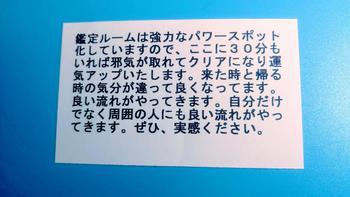 鑑定ルームは強力なパワースポット
化していますので、ここに３０分も
いれば邪気が取れてクリアになり運
気アップいたします。来た時と帰る
時の気分が違って良くなってます。
良い流れがやってきます。自分だけ
でなく周囲の人にも良い流れがやっ
てきます。ぜひ、実感ください。